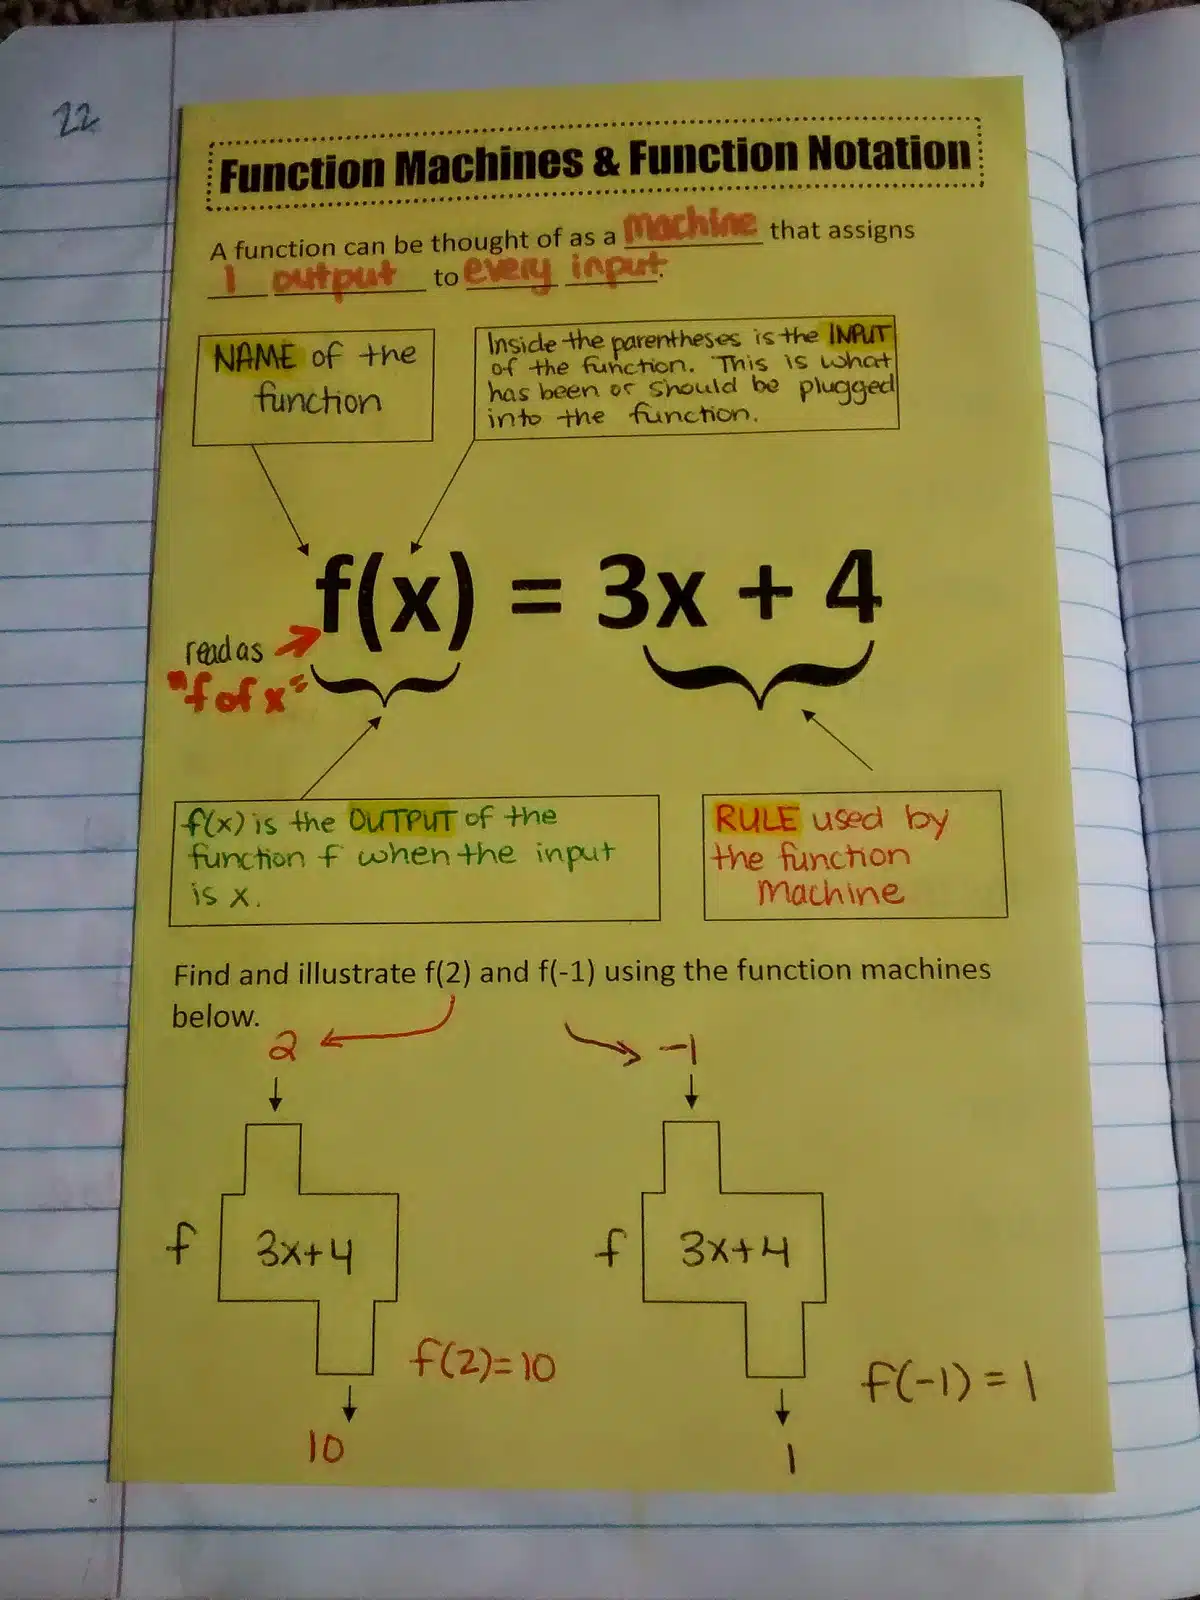 22
Function Machines & Function Notation
A function can be thought of as a machine that assigns
1 output to every input.
NAME of the
function
Inside the parentheses is the INPUT
of the function. This is what
has been or should be plugged
into the function.
f(x) = 3x + 4
read as
"f of x"
f(x) is the OUTPUT of the
function f when the input
is x.
RULE used by
the function
Machine
Find and illustrate f(2) and f(-1) using the function machines
below.
2
-1
f
3x+4
f
3x+4
f(2)=10
f(-1) = 1
10
1